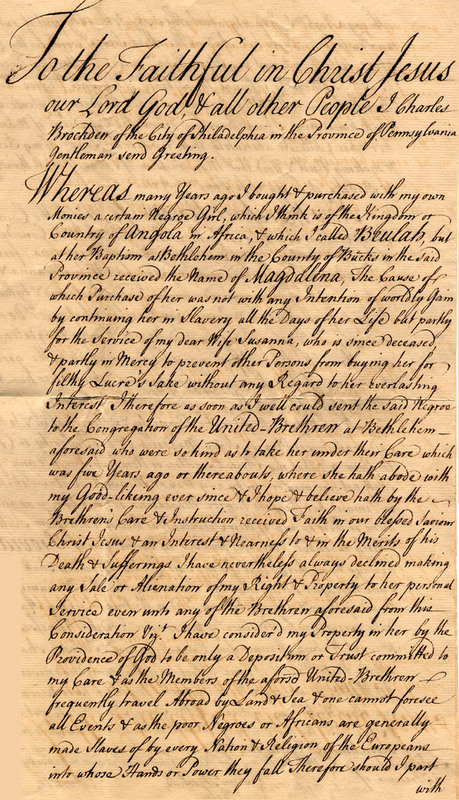 To the Faithful in Christ Jesus
our Lord God, & all other People I Charles
Brockden of the City of Philadelphia in the Province of Pennsylvania
Gentleman send Greeting.
Whereas many Years ago I bought & purchased with my own
Monies a certain Negroe Girl, which I think is of the Kingdom or
Country of Angola in Africa, & which I called Beulah, but
at her Baptism at Bethlehem in the County of Bucks in the said
Province received the Name of Magdalena, The Cause of
which Purchase of her was not with any Intention of worldly Gain
by continuing her in Slavery all the Days of her Life but partly
for the Service of my dear Wife Susanna, who is since deceased
& partly in Mercy to prevent other Persons from buying her for
filthy Lucre's Sake without any Regard to her everlasting
Interest, I therefore as soon as I well could sent the said Negroe
to the Congregation of the United-Brethren at Bethlehem
aforesaid who were so kind as to take her under their Care which
was five Years ago or thereabouts, where she hath abode with
my Good-likeing ever since & I hope & believe hath by the
Brethren's Care & Instruction received Faith in our blessed Saviour
Christ Jesus & an Interest & Nearness to & in the Merits of his
Death & Sufferings I have nevertheless always declined making
any Sale or Alienation of my Right & Property to her personal
Service even unto any of the Brethren aforesaid from this
Consideration Viz.t I have consider'd my Property in her by the
Providence of God to be only a Depositum or Trust committed to
my Care & as the Members of the aforsd United-Brethren
frequently travel Abroad by Land & Sea & one cannot foresee
all Events & as the poor Negroes or Africans are generally
made Slaves of by every Nation & Religion of the Europeans
into whose Hands or Power they fall Therefore should I part
with